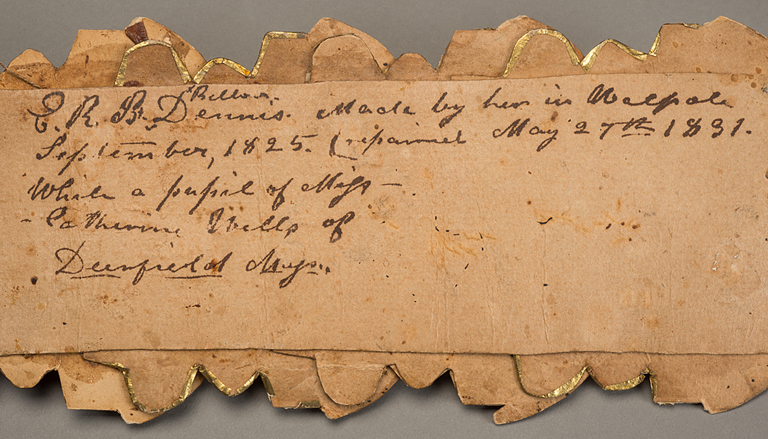 Bellows.
E. R. B. Dennis. Made by her in Walpole
September, 1825. (repaired May 27th 1831.
While a pupil of Miss –
- Catherine Wells of
Deerfield Mass.